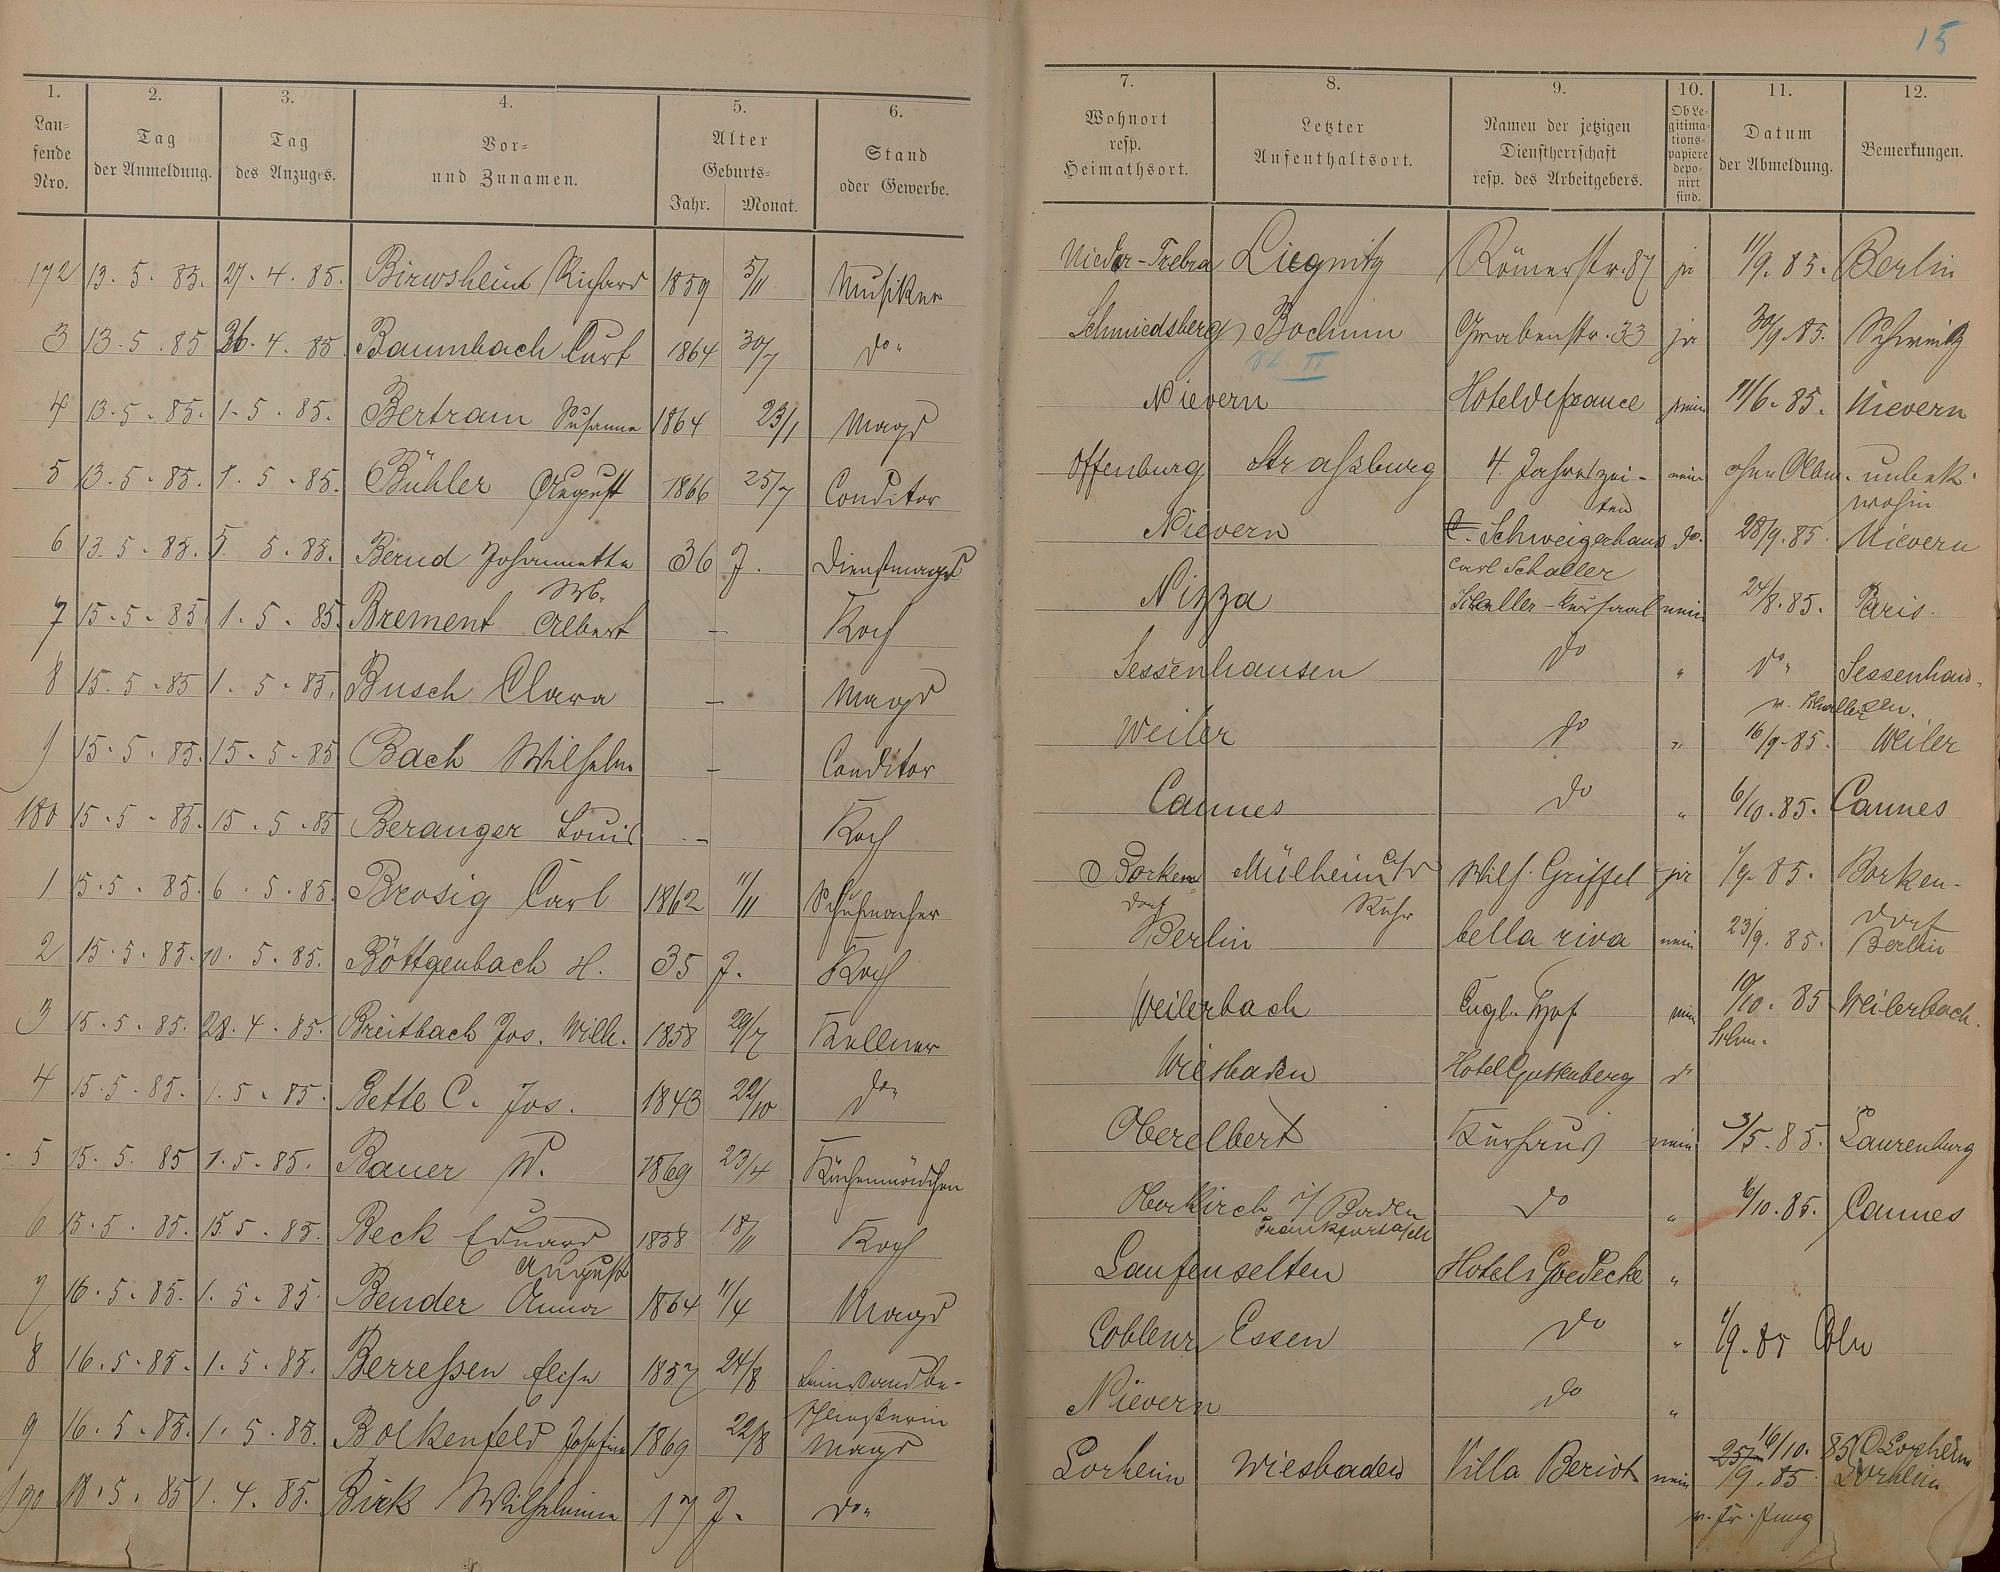 15
1. 2. 3. 4. 5. 6. 7. 8. 9. 10. 11. 12.
Lau=
fende
Nro.
Tag
der Anmeldung.
Tag
des Anzuges.
Vor=
und Zunamen.
Alter
Geburts=
Jahr. Monat.
Stand
oder Gewerbe.
Wohnort
resp.
Heimathsort.
Letzter
Aufenthaltsort.
Namen der jetzigen
Dienstherrschaft
resp. des Arbeitgebers.
Ob Le-
gitima-
tions-
papiere
depo-
nirt
sind.
Datum
der Abmeldung.
Bemerkungen.
172 13. 5. 85. 27. 4. 85. Richard 1859 5/11 Musiker Nieder-Trebra Liegnitz Römerstr. 87 ja 11/9. 85. Berlin
3 13. 5. 85 26. 4. 85 Baumbach Curt 1864 30/7 do. Schmiedsberg Bochum Grabenstr. 33 ja 30/9. 85. Schweitz
II
4 13. 5. 85. 1. 5. 85. Bertram Susanna 1864 23/1 Magd Nievern Hotel de france nein 11/6. 85. Nievern
5 13. 5. 85. 1. 5. 85. Bühler August 1866 25/7 Conditor Offenburg Straßburg 4. Jahreszei- nein ohne Abm. unbek.
ten wohin
6 13. 5. 85. 1. 5. 85. Bernd Johannetta 36 J. Dienstmagd Nievern Schweizerhaus do. 28/9. 85. Nievern
Wb. Carl Schaller
7 15. 5. 85 1. 5. 85 Brement Albert — Koch Nizza Schaller-Kursaal nein 24/8. 85. Paris.
8 15. 5. 85 1. 5. 85. Busch Clara — Magd Sessenhausen do " do. Sessenhau-
v. Schaller sen.
9 15. 5. 85. 15. 5. 85 Bach Wilhelm — Conditor Weiler do " 16/9. 85. Weiler
180 15. 5. 85. 15. 5. 85 Beranger Louis — Koch Cannes do " 6/10. 85. Cannes
1 15. 5. 85. 6. 5. 85. Brosig Carl 1862 11/11 Schuhmacher Borken- Mülheim a/d Wilh. Griffel ja 1/9. 85. Borken-
dorf Ruhr dorf
2 15. 5. 85. 10. 5. 85. Böttgenbach H. 35 J. Koch Berlin bella riva nein 23/9. 85. Berlin
3 15. 5. 85. 28. 4. 85. Breitbach Jos. Wilh. 1858 29/7 Kellner Weilerbach Engl. Hof nein 10/10. 85 Weilerbach.
4 15. 5. 85. 1. 5. 85. Bette C. Jos. 1843 22/10 do. Wiesbaden Hotel Guttenberg do
5 15. 5. 85 1. 5. 85. Bauer W. 1869 23/4 Küchenmädchen Oberelbert Kurhaus nein 3/5. 85. Laurenburg
6 15. 5. 85. 15. 5. 85. Beck Eduard 1858 18/11 Koch Oberkirch i/ Baden do " 6/10. 85. Cannes
August
7 16. 5. 85. 1. 5. 85 Bender Anna 1864 11/4 Magd Laufenselten Hotel Goedecke "
8 16. 5. 85. 1. 5. 85. Berressen Elise 1857 24/8 Leinwandbe- Coblenz Essen do " 1/9. 85 Cöln
schließerin
9 16. 5. 85. 1. 5. 85. Bolkenfeld Josefine 1869 22/8 Magd Nievern do "
16/10. 85 Lorheim
190 18. 5. 85 1. 4. 85. Birk Wilhelmine 17 J. do. Lorheim Wiesbaden Villa Beriot nein 25/9. 85 Lorheim
v. Fr. Jung